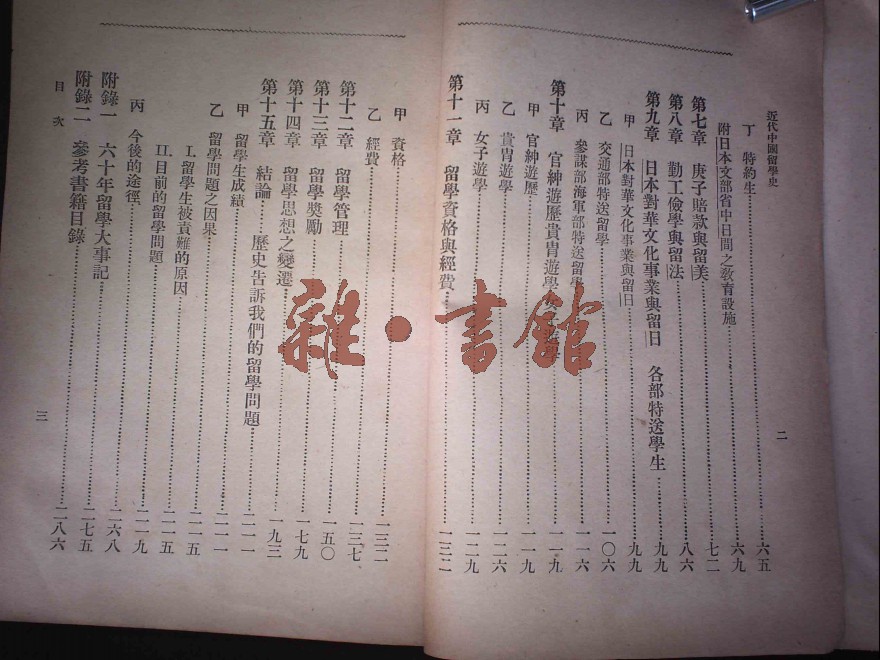 近代中國留學史
二
丁 特約生……六五
附日本文部省中日間之教育設施……六九
第七章 庚子賠款與留美……七二
第八章 勤工儉學與留法……八六
第九章 日本對華文化事業與留日 各部特送學生……九九
甲 日本對華文化事業與留日……九九
乙 交通部特送留學……一〇六
丙 參謀部海軍部特送留學……一一六
第十章 官紳遊歷貴胄遊學……一一九
甲 官紳遊歷……一一九
乙 貴胄遊學……一二六
丙 女子遊學……一二九
第十一章 留學資格與經費……一三二
甲 資格……一三二
乙 經費……一三七
第十二章 留學管理……一五〇
第十三章 留學獎勵……一七九
第十四章 留學思想之變遷……一九三
第十五章 結論——歷史告訴我們的留學問題……二一一
甲 留學生成績……二一一
乙 留學問題之因果……二一五
I. 留學生被責難的原因……二一五
II. 目前的留學問題……二一九
丙 今後的途徑……二六八
附錄一 六十年留學大事記……二七五
附錄二 參考書籍目錄……二八六
目次
三
雜·書館